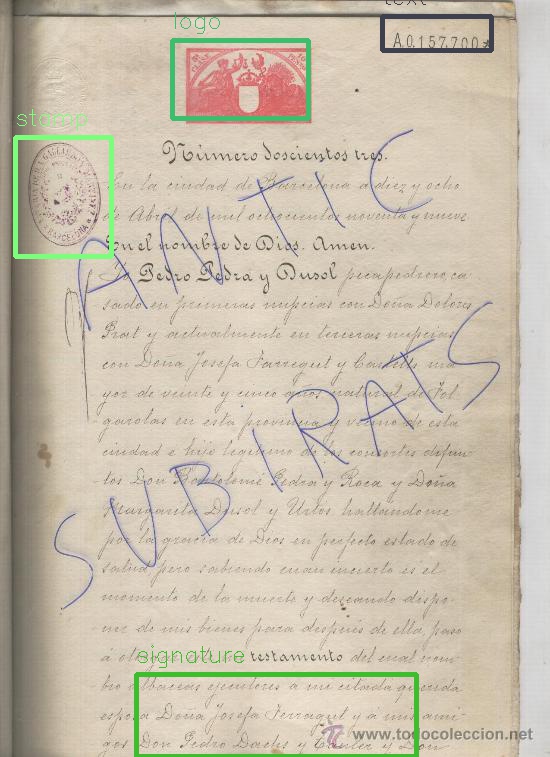 text
logo
A.0.157.700*
stamp
BARCELONA
Número doscientos tres.
En la ciudad de Barcelona a diez y ocho
de Abril de mil ochocientos noventa y nueve
En el nombre de Dios. Amen.
Yo Pedro Pedra y Dusol picapedrero, ca
sado en primeras nupcias con Doña Dolores
Prat y actualmente en terceras nupcias
con Doña Josefa Farregut y Castells ma
yor de veinte y cinco años natural de Fol
garolas en esta provincia y vecino de esta
ciudad e hijo legitimo de los consortes difun
tos Don Bartolomé Pedra y Roca y Doña
Margarita Dusol y hallándome
por la gracia de Dios en perfecto estado de
salud pero sabiendo cuan incierto es el
momento de la muerte y deseando dispo
ner de mis bienes para después de ella, paso
á testamento del cual nom
bro albaceas ejecutores a mi citada querida
esposa Doña Josefa Ferragut y á mis ami
gos Don Pedro y Don
ANTIC
SUBIRATS
signature
www.todocoleccion.net